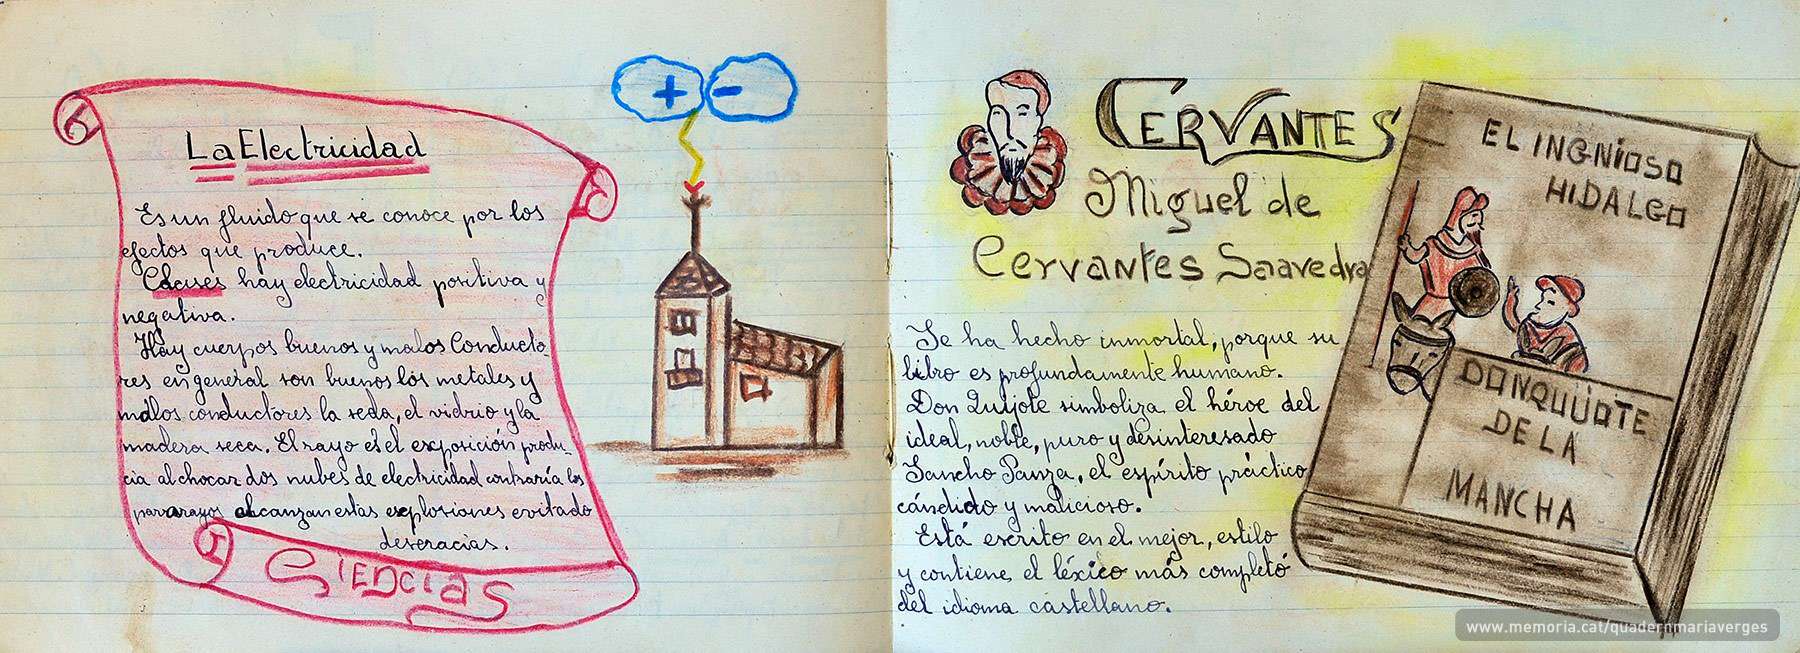 La Electricidad
Es un fluido que se conoce por los
efectos que produce.
Clases hay electricidad positiva y
negativa.
Hay cuerpos buenos y malos Conducto-
res en general son buenos los metales y
malos conductores la seda, el vidrio y la
madera seca. El rayo es el exposición produ-
cia al chocar dos nubes de electricidad contraría los
pararrayos alcanzan estas explosiones evitado
desgracias.
CIENCIAS
+ -
CERVANTES
Miguel de
Cervantes Saavedra
Se ha hecho inmortal, porque su
libro es profundamente humano.
Don Quijote simboliza el héroe del
ideal, noble, puro y desinteresado
Sancho Panza, el espíritu práctico,
cándido y malicioso.
Está escrito en el mejor, estilo
y contiene el léxico más completó
del idioma castellano.
EL INGNIOSO
HIDALGO
DONQUIJOTE
DE LA
MANCHA
www.memoria.cat/quadernmariaverges